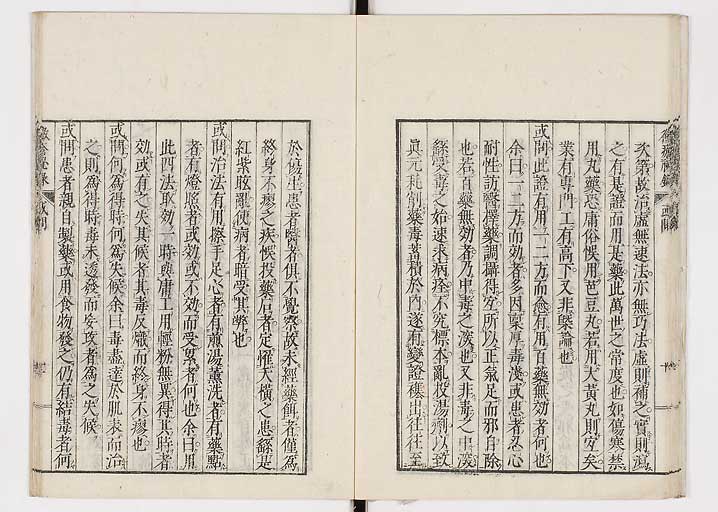 次第故治虛無速法亦無巧法虛則補之實則瀉
之有是證而用是藥此萬世之常度也如傷寒禁
用丸藥恐庸俗悞用芭豆丸若用大黃丸則宜矣
業有專門工有高下又非槩論也
或問此證有用一二方而愈有用百藥無効者何也
余曰一二方而効者多因稟厚毒淺或患者忍心
耐性訪醫擇藥調攝得宜所以正氣足而邪自除
也若百藥無効者乃中毒之深也又非毒之中深
繇受毒之始速求病痊不究標本亂投湯劑以致
眞元耗削藥毒蓄積於內遂有變證疊出往往至
於傷生患者醫者俱不覺察故未經藥餌者僅爲
終身不瘳之疾悞投藥石者定罹夭橫之患繇是
紅紫眩亂使病者暗受其弊也
或問治法有用擦手足心者有煎湯薰洗者有藥點
者有燈照者或効或不効而受害者何也余曰用
此四法取効一時與庸工用輕粉無異得其時者
効或有之失其候者其毒反熾而終身不瘳也
或問何爲得時何爲失候余曰毒盡達於肌表而治
之則爲得時毒未透發而妄攻者爲之失候
或問患者親自製藥或用食物發之仍有結毒者何